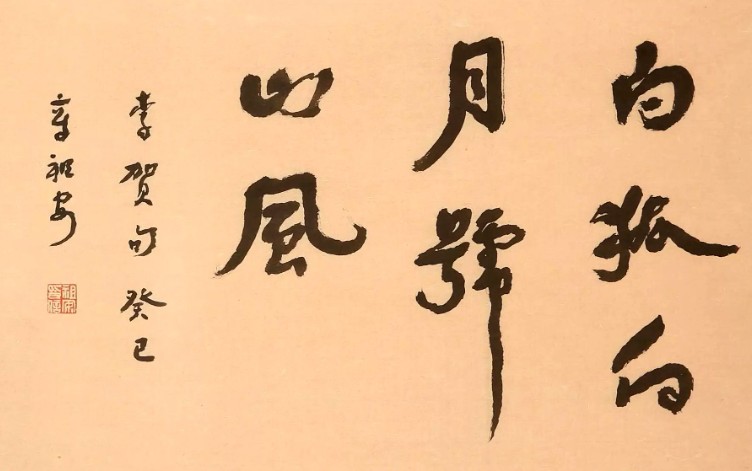 白狐向
月號
山風
李賀句癸巳
章祖安